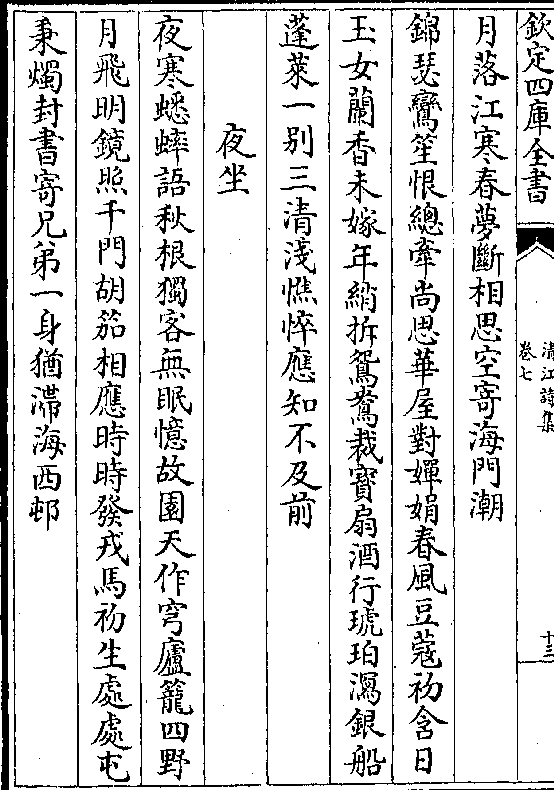 欽定四庫全書
清江詩集
卷七
十三
月落江寒春夢斷相思空寄海門潮
錦瑟鸞笙恨總牽尚思華屋對嬋娟春風豆蔻初含日
玉女蘭香未嫁年綃拆鴛鴦裁寶扇酒行琥珀瀉銀船
蓬萊一別三清淺憔悴應知不及前
夜坐
夜寒蟋蟀語秋根獨客無眠憶故園天作穹廬籠四野
月飛明鏡照千門胡笳相應時時發戎馬初生處處屯
秉燭封書寄兄弟一身猶滯海西邨